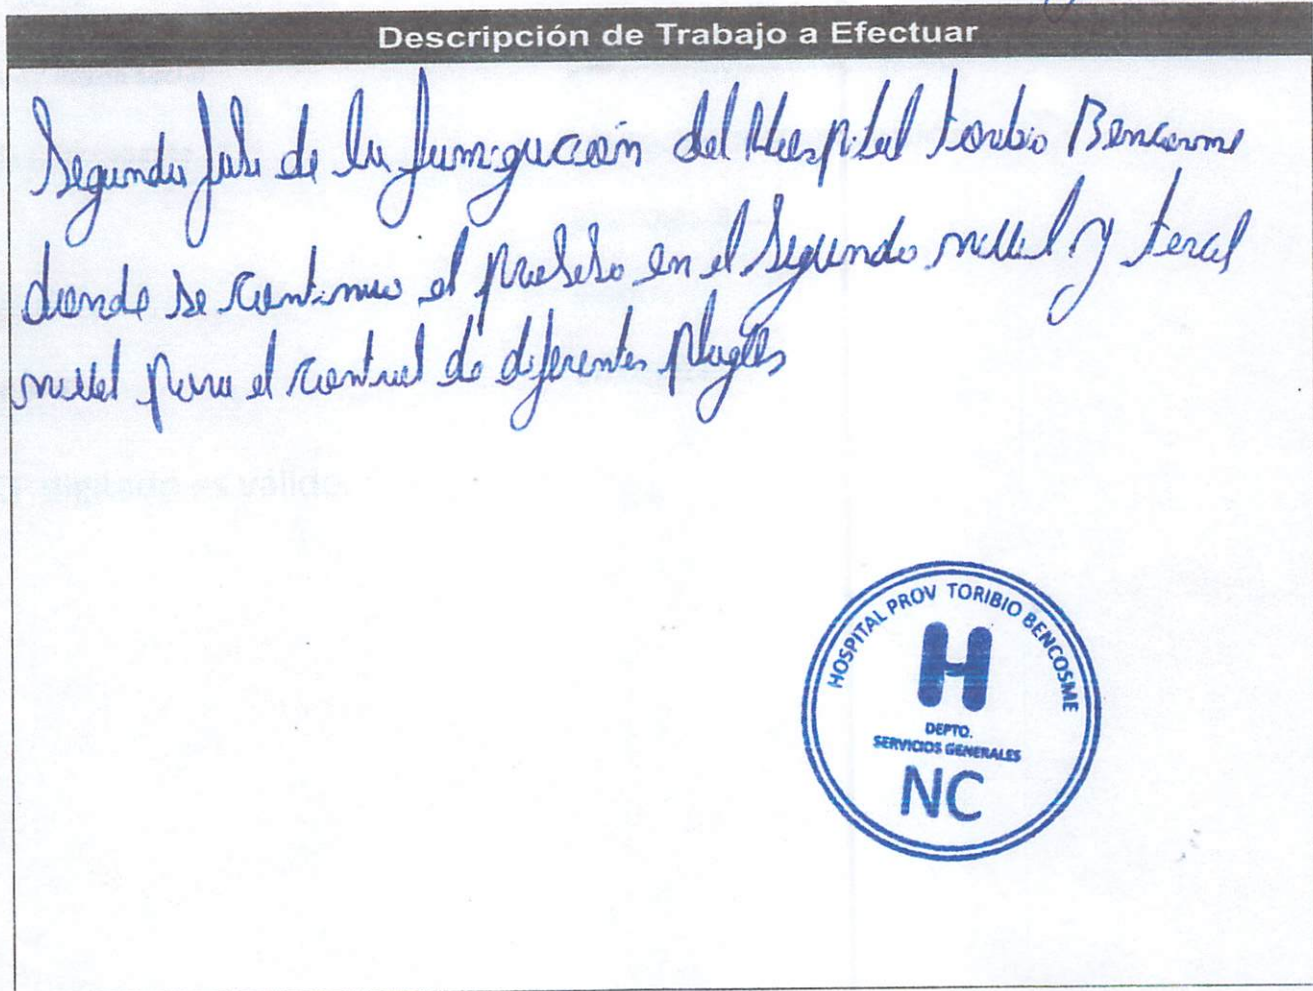 Descripción de Trabajo a Efectuar
Segunda fase de la fumigación del Hospital toribio Bencosme
donde se continuo el proseso en el segundo nivel y tercel
nivel para el control de diferentes plagas
HOSPITAL PROV TORIBIO BENCOSME
H
DEPTO.
SERVICIOS GENERALES
NC
digitado es válido.